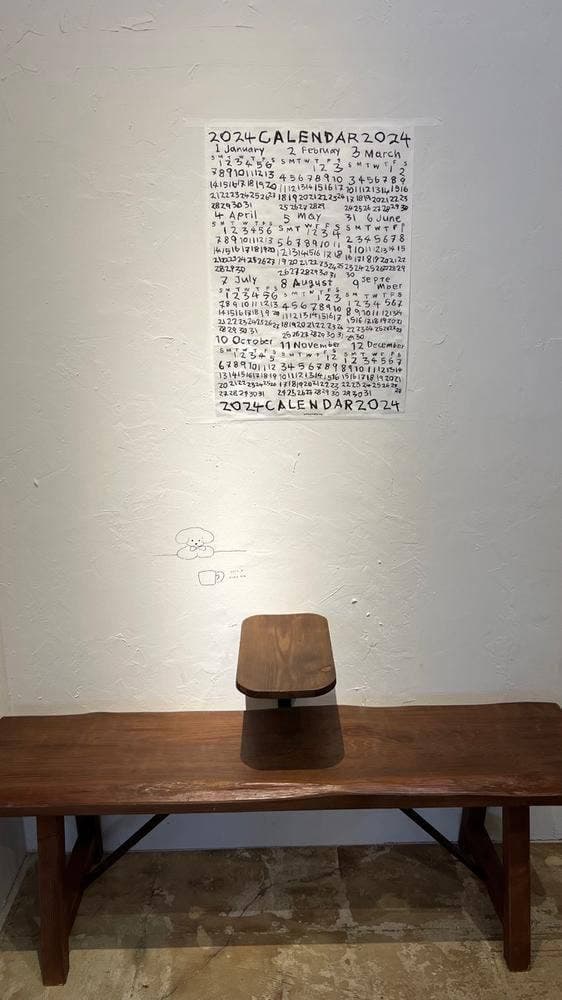 2024CALENDAR2024
1 January
S M T W T F S
1 2 3 4 5 6
7 8 9 10 11 12 13
14 15 16 17 18 19 20
21 22 23 24 25 26 27
28 29 30 31
2 February
S M T W T F S
1 2 3
4 5 6 7 8 9 10
11 12 13 14 15 16 17
18 19 20 21 22 23 24
25 26 27 28 29
3 March
S M T W T F S
1 2
3 4 5 6 7 8 9
10 11 12 13 14 15 16
17 18 19 20 21 22 23
24 25 26 27 28 29 30
31
4 April
S M T W T F S
1 2 3 4 5 6
7 8 9 10 11 12 13
14 15 16 17 18 19 20
21 22 23 24 25 26 27
28 29 30
5 May
S M T W T F S
1 2 3 4
5 6 7 8 9 10 11
12 13 14 15 16 17 18
19 20 21 22 23 24 25
26 27 28 29 30 31
6 June
S M T W T F S
1
2 3 4 5 6 7 8
9 10 11 12 13 14 15
16 17 18 19 20 21 22
23 24 25 26 27 28 29
30
7 July
S M T W T F S
1 2 3 4 5 6
7 8 9 10 11 12 13
14 15 16 17 18 19 20
21 22 23 24 25 26 27
28 29 30 31
8 August
S M T W T F S
1 2 3
4 5 6 7 8 9 10
11 12 13 14 15 16 17
18 19 20 21 22 23 24
25 26 27 28 29 30 31
9 Septe
mber
S M T W T F S
1 2 3 4 5 6 7
8 9 10 11 12 13 14
15 16 17 18 19 20 21
22 23 24 25 26 27 28
29 30
10 October
S M T W T F S
1 2 3 4 5
6 7 8 9 10 11 12
13 14 15 16 17 18 19
20 21 22 23 24 25 26
27 28 29 30 31
11 November
S M T W T F S
1 2
3 4 5 6 7 8 9
10 11 12 13 14 15 16
17 18 19 20 21 22 23
24 25 26 27 28 29 30
12 December
S M T W T F S
1 2 3 4 5 6 7
8 9 10 11 12 13 14
15 16 17 18 19 20 21
22 23 24 25 26 27 28
29 30 31
2024CALENDAR2024